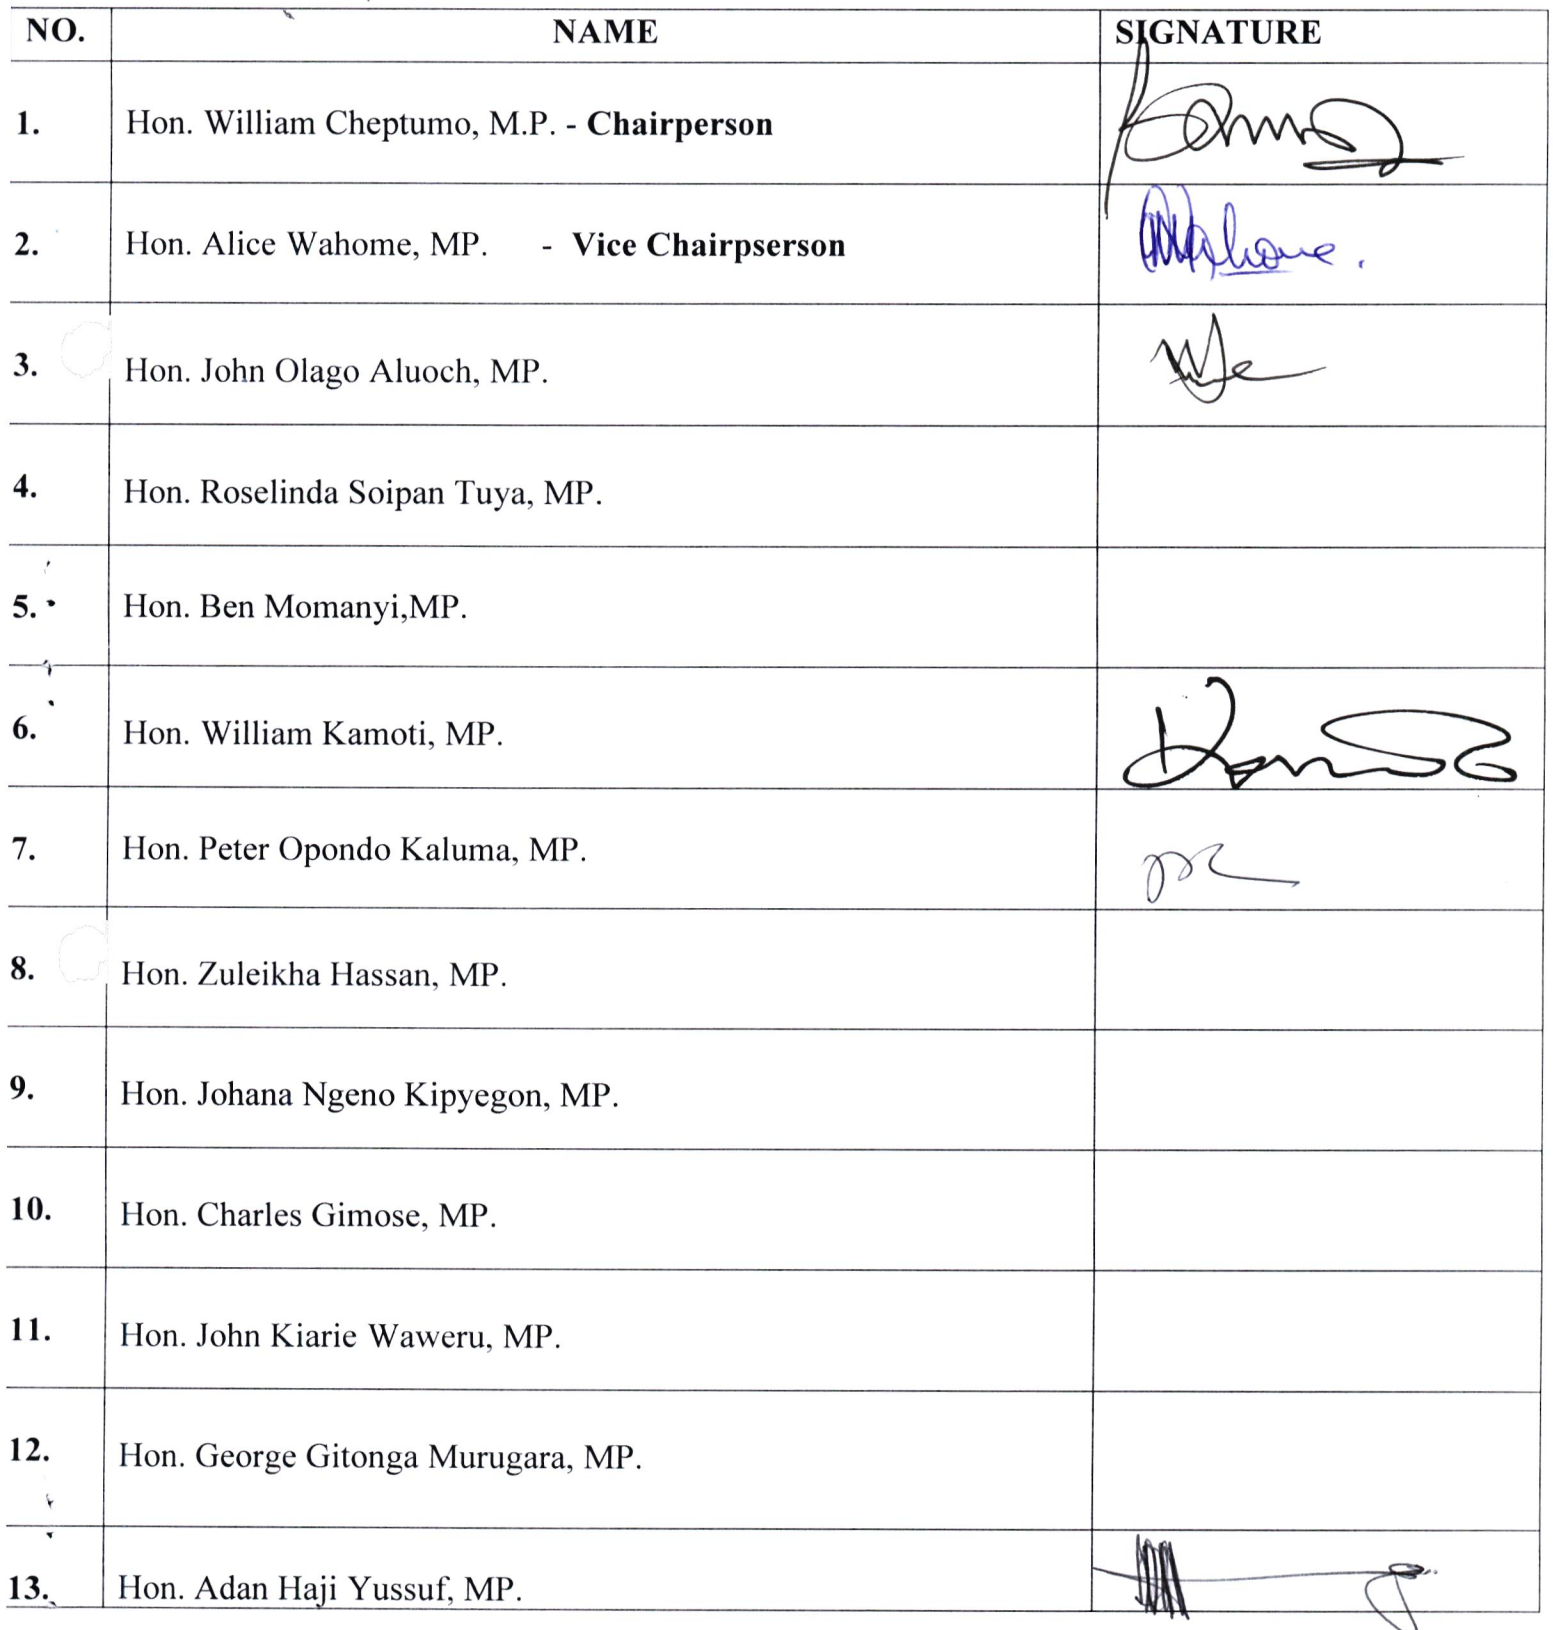 NO. NAME SIGNATURE
1. Hon. William Cheptumo, M.P. - Chairperson
2. Hon. Alice Wahome, MP. - Vice Chairpserson
3. Hon. John Olago Aluoch, MP.
4. Hon. Roselinda Soipan Tuya, MP.
5. Hon. Ben Momanyi,MP.
6. Hon. William Kamoti, MP.
7. Hon. Peter Opondo Kaluma, MP.
8. Hon. Zuleikha Hassan, MP.
9. Hon. Johana Ngeno Kipyegon, MP.
10. Hon. Charles Gimose, MP.
11. Hon. John Kiarie Waweru, MP.
12. Hon. George Gitonga Murugara, MP.
13. Hon. Adan Haji Yussuf, MP.